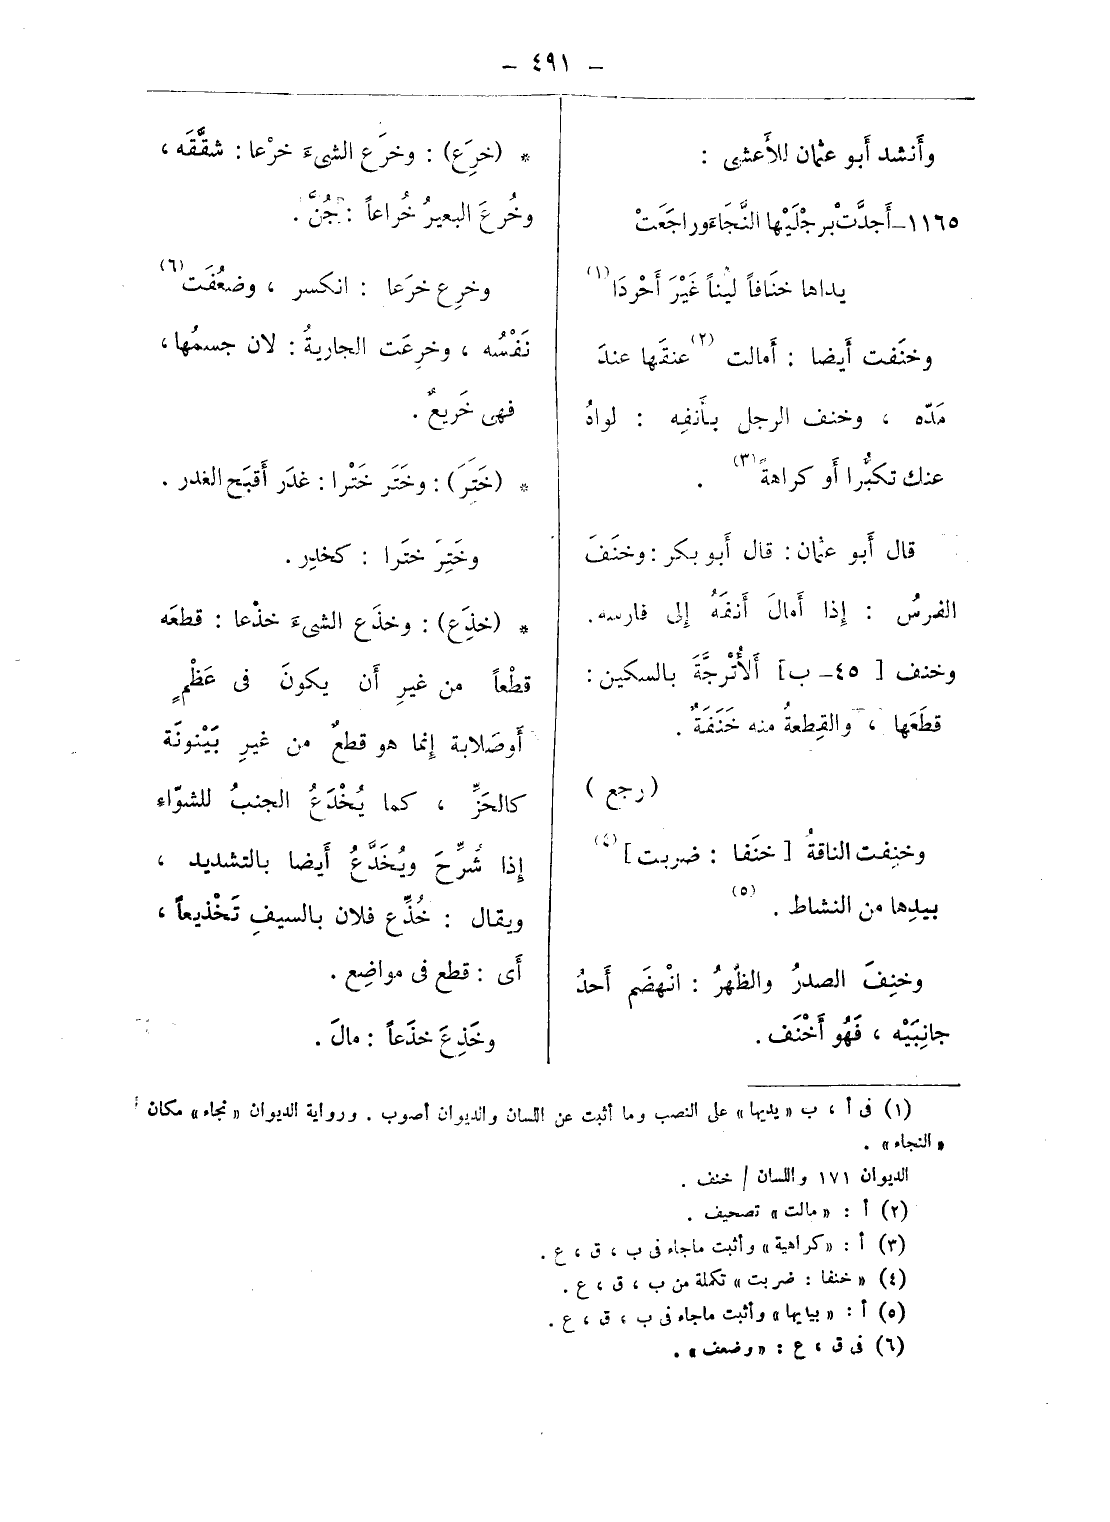 – ٤٩١ –
وأَنشد أَبو عثمان للأَعشى :
١١٦٥–أَجدَّتْ برجْلَيْها النَّجَاءَ وراجَعَتْ
يداها خنَافاً ليْناً غَيْرَ أَحْردَا(١)
وخنَفت أَيضا : أَمالت (٢) عنقَها عندَ
مَدّه ، وخنف الرجل بأَنفِه : لواهُ
عنك تكبُّرا أَو كراهةً (٣) .
قال أَبو عثمان : قال أَبو بكر : وخنَفَ
الفرسُ : إِذا أَمالَ أَنفَهُ إِلى فارسه .
وخنف [ ٤٥– ب] الأُتْرجَّةَ بالسكين :
قطَعَها ، والقِطعةُ منه خَنَفَةٌ .
( رجع )
وخنِفت الناقةُ [ خنَفا : ضربت ] (٤)
بيدِها من النشاط . (٥)
وخنِفَ الصدرُ والظهرُ : انْهضَم أَحدُ
جانِبَيْه ، فَهُو أَخْنَف .
* (خرِعَ) : وخرَع الشىءَ خرْعا : شقَّقَه ،
وخُرعَ البعيرُ خُراعاً : جُنَّ .
وخرِع خرَعا : انكسر ، وضعُفَت (٦)
نَفْسُه ، وخرِعَت الجاريةُ : لان جسمُها ،
فهى خَريعٌ .
* (خَتَرَ) : وخَتَر خَتْرا : غدَر أَقبَح الغدر .
وخَتِرَ ختَرا : كخدِر .
* (خذِعَ) : وخذَع الشىءَ خذْعا : قطعَه
قطْعاً من غيرِ أَن يكونَ فى عَظْمٍ
أَوصَلابة إِنما هو قطعٌ من غيرِ بَيْنونَة
كالحَزِّ ، كما يُخْذَعُ الجنبُ للشوّاء
إِذا شُرِّحَ ويُخَذَّعُ أَيضا بالتشديد ،
ويقال : خُذِّع فلان بالسيفِ تَخْذيعاً ،
أَى : قطع فى مواضِع .
وخَذِعَ خذَعاً : مالَ .
(١) فى أ ، ب «يديها» على النصب وما أثبت عن اللسان والديوان أصوب . ورواية الديوان «نجاء» مكان
«النجاء» .
الديوان ١٧١ واللسان / خنف .
(٢) أ : «مالت» تصحيف .
(٣) أ : «كراهية» وأثبت ماجاء فى ب ، ق ، ع .
(٤) «خنفا : ضربت» تكملة من ب ، ق ، ع .
(٥) أ : «بيايها» وأثبت ماجاء فى ب ، ق ، ع .
(٦) فى ق ، ع : «وضعف» .